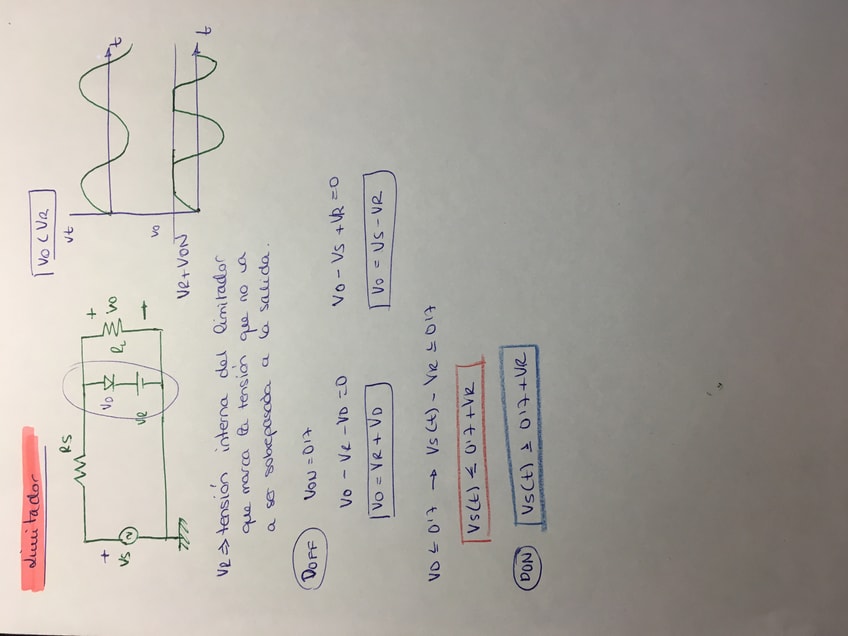 Limitador
VO < VR
RS
+
VS
VD
VR
RL
+
VO
-
Vt
t
VO
VR+VON
t
VR ⇒ tensión interna del limitador
que marca la tensión que no va
a ser sobrepasada a la salida.
DOFF VON = 0'7
VO - VR - VD = 0 VO - VS + VR = 0
VO = VR + VD VO = VS - VR
VD ≤ 0'7 → VS(t) - VR ≤ 0'7
VS(t) ≤ 0'7 + VR
DON VS(t) ≥ 0'7 + VR